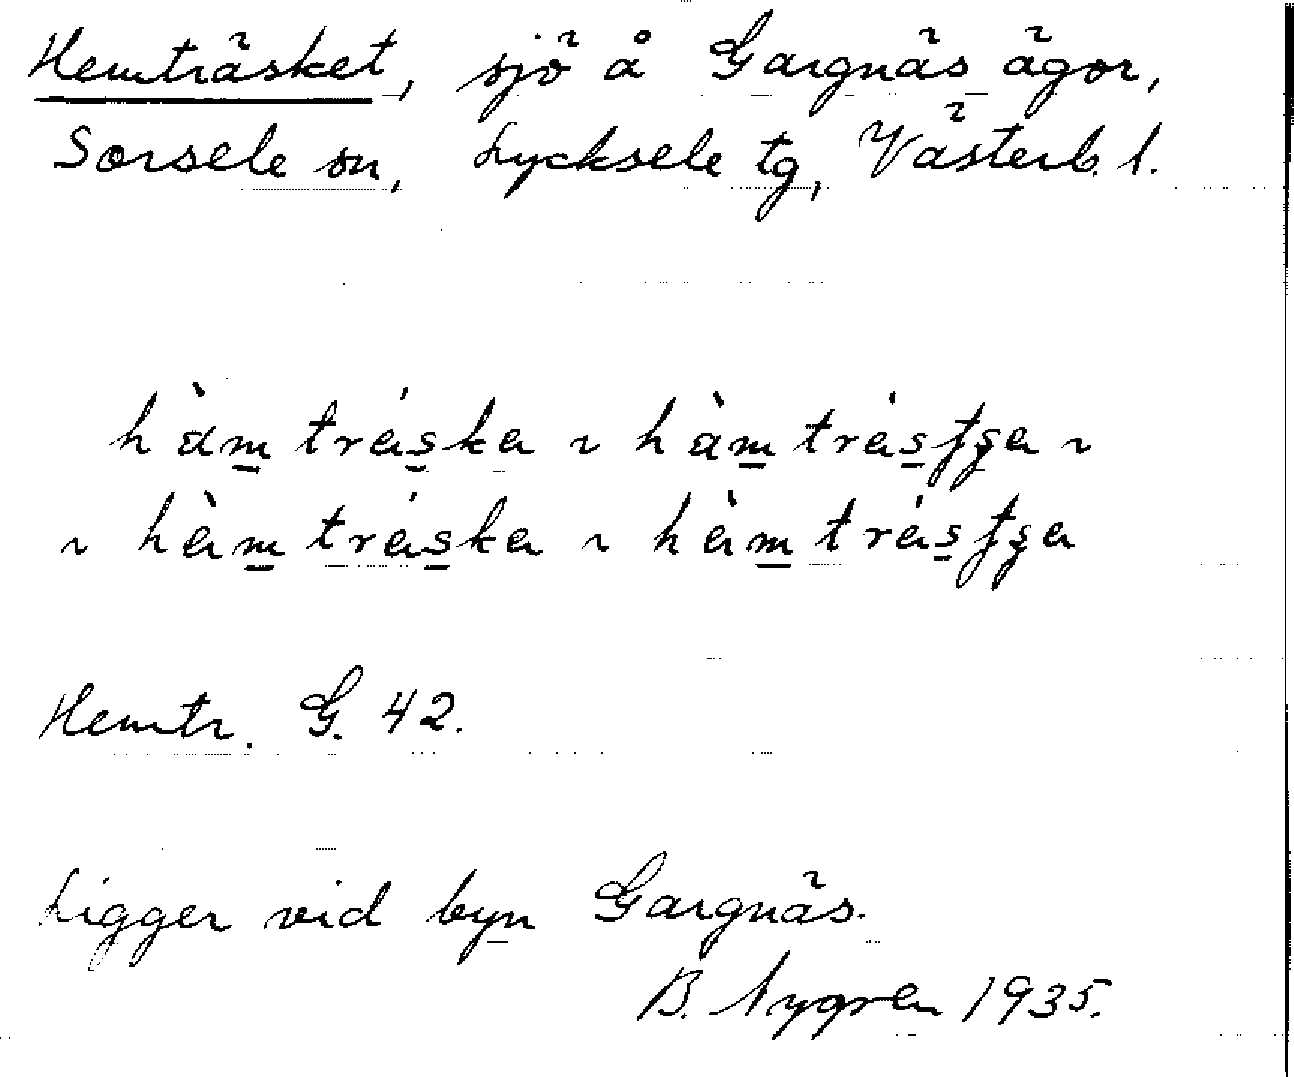 Hemträsket, sjö å Gargnäs ägor,
Sorsele sn, Lycksele tg, Västerb. l.
hàm̲ trás̲ka ~ hàm̲ trás̲ʃʂa ~
~ hàm̲ trás̲ka ~ hàm̲ trás̲ʃʂa
Hemtr. G. 42.
Ligger vid byn Gargnäs.
B. Nygren 1935.